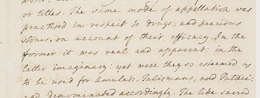 or titles. The same mode of appellation was
practised in respect to drugs; and precious
stones on account of their efficacy. In the
former it was real and apparent in the
latter imaginary; yet were they so esteemed as
to be used for Amulets, Talismans, and
and denominated accordingly. The like sacred